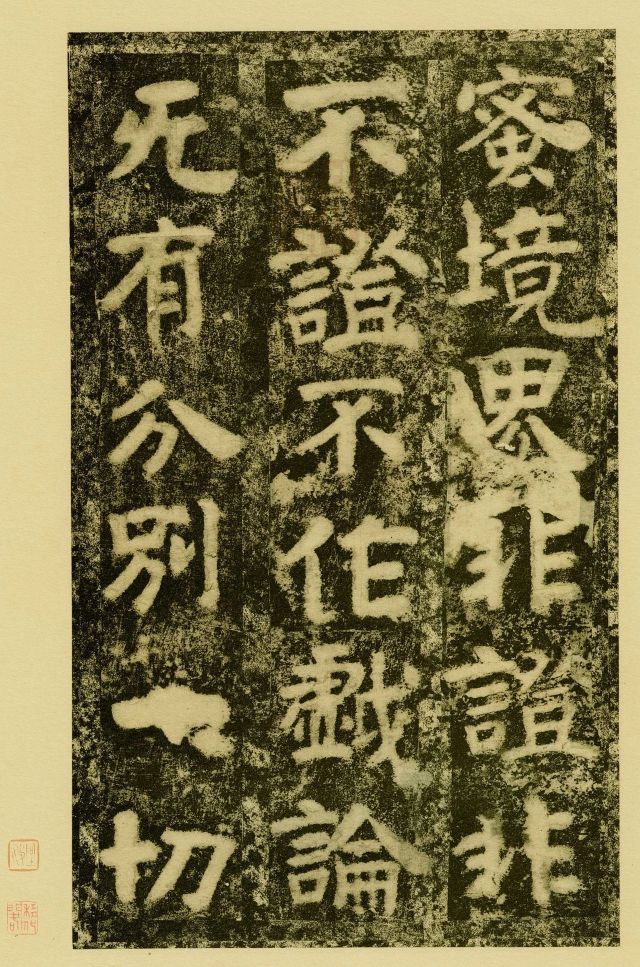 蜜境界非證非
不證不作戲論
无有分別一切